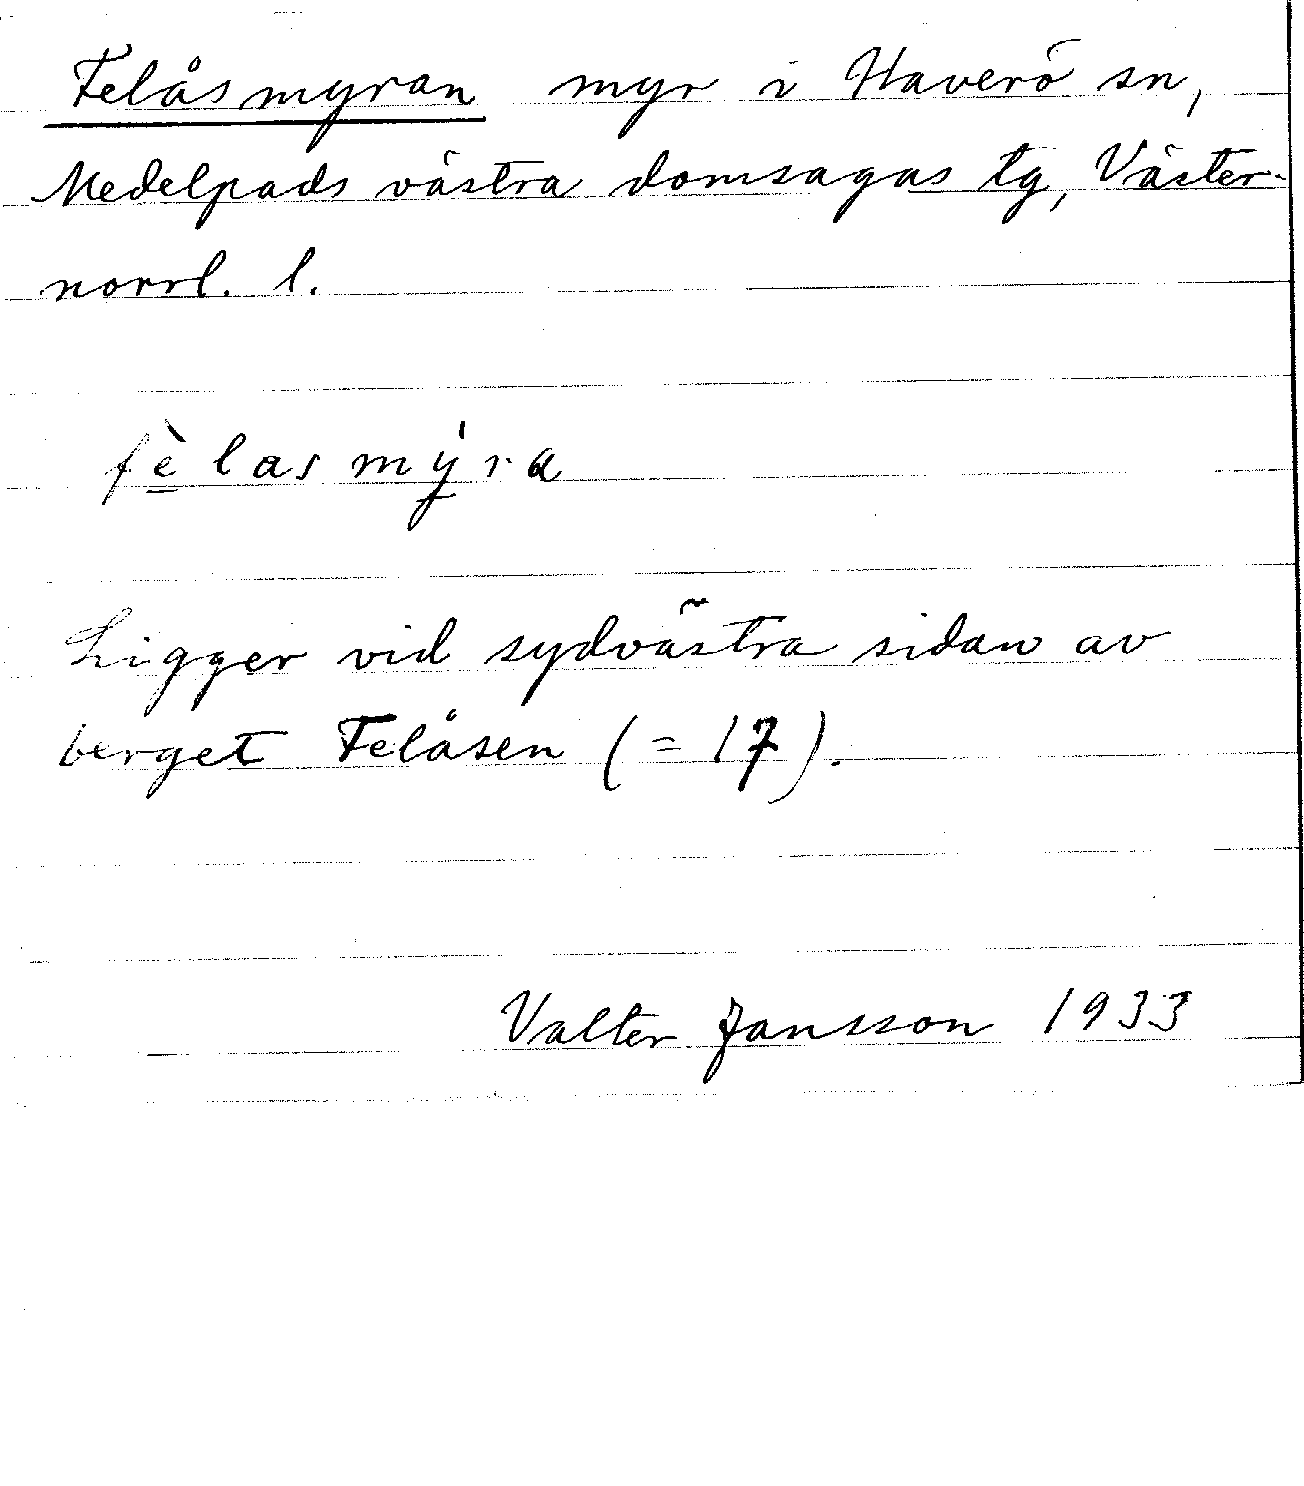 Felåsmyran myr i Haverö sn,
Medelpads västra domsagas tg, Väster-
norrl. l.
fèlasmýra
Ligger vid sydvästra sidan av
berget Felåsen (= 17).
Valter Jansson 1933